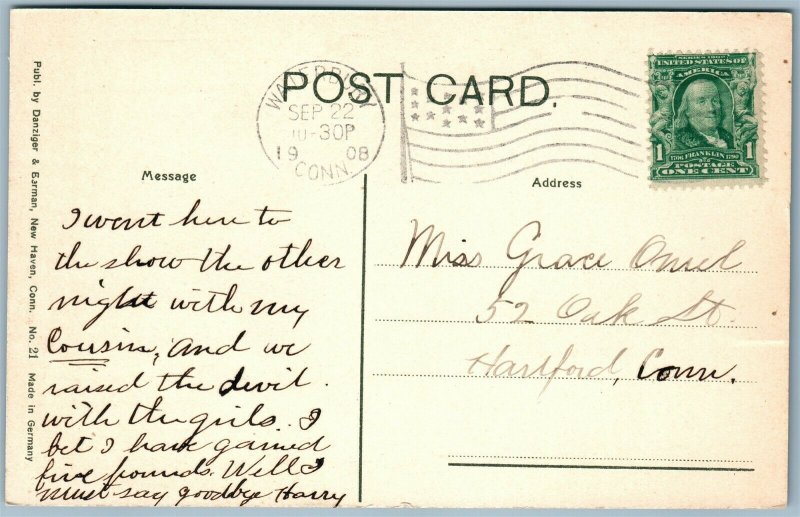 POST CARD.
WATERBURY
SEP 22
10-30P
19 08
CONN.
SERIES 1902
UNITED STATES OF
AMERICA
1 1
1706 FRANKLIN 1790
POSTAGE
ONE CENT
Message
I went here to
the show the other
night with my
Cousin, And we
raised the devil.
with the girls. I
bet I have gained
five pounds. Well I
must say goodbye Harry
Address
Miss Grace Oniel
52 Oak St.
Hartford, Conn.
Publ. by Danziger & Berman, New Haven, Conn. No. 21 Made in Germany